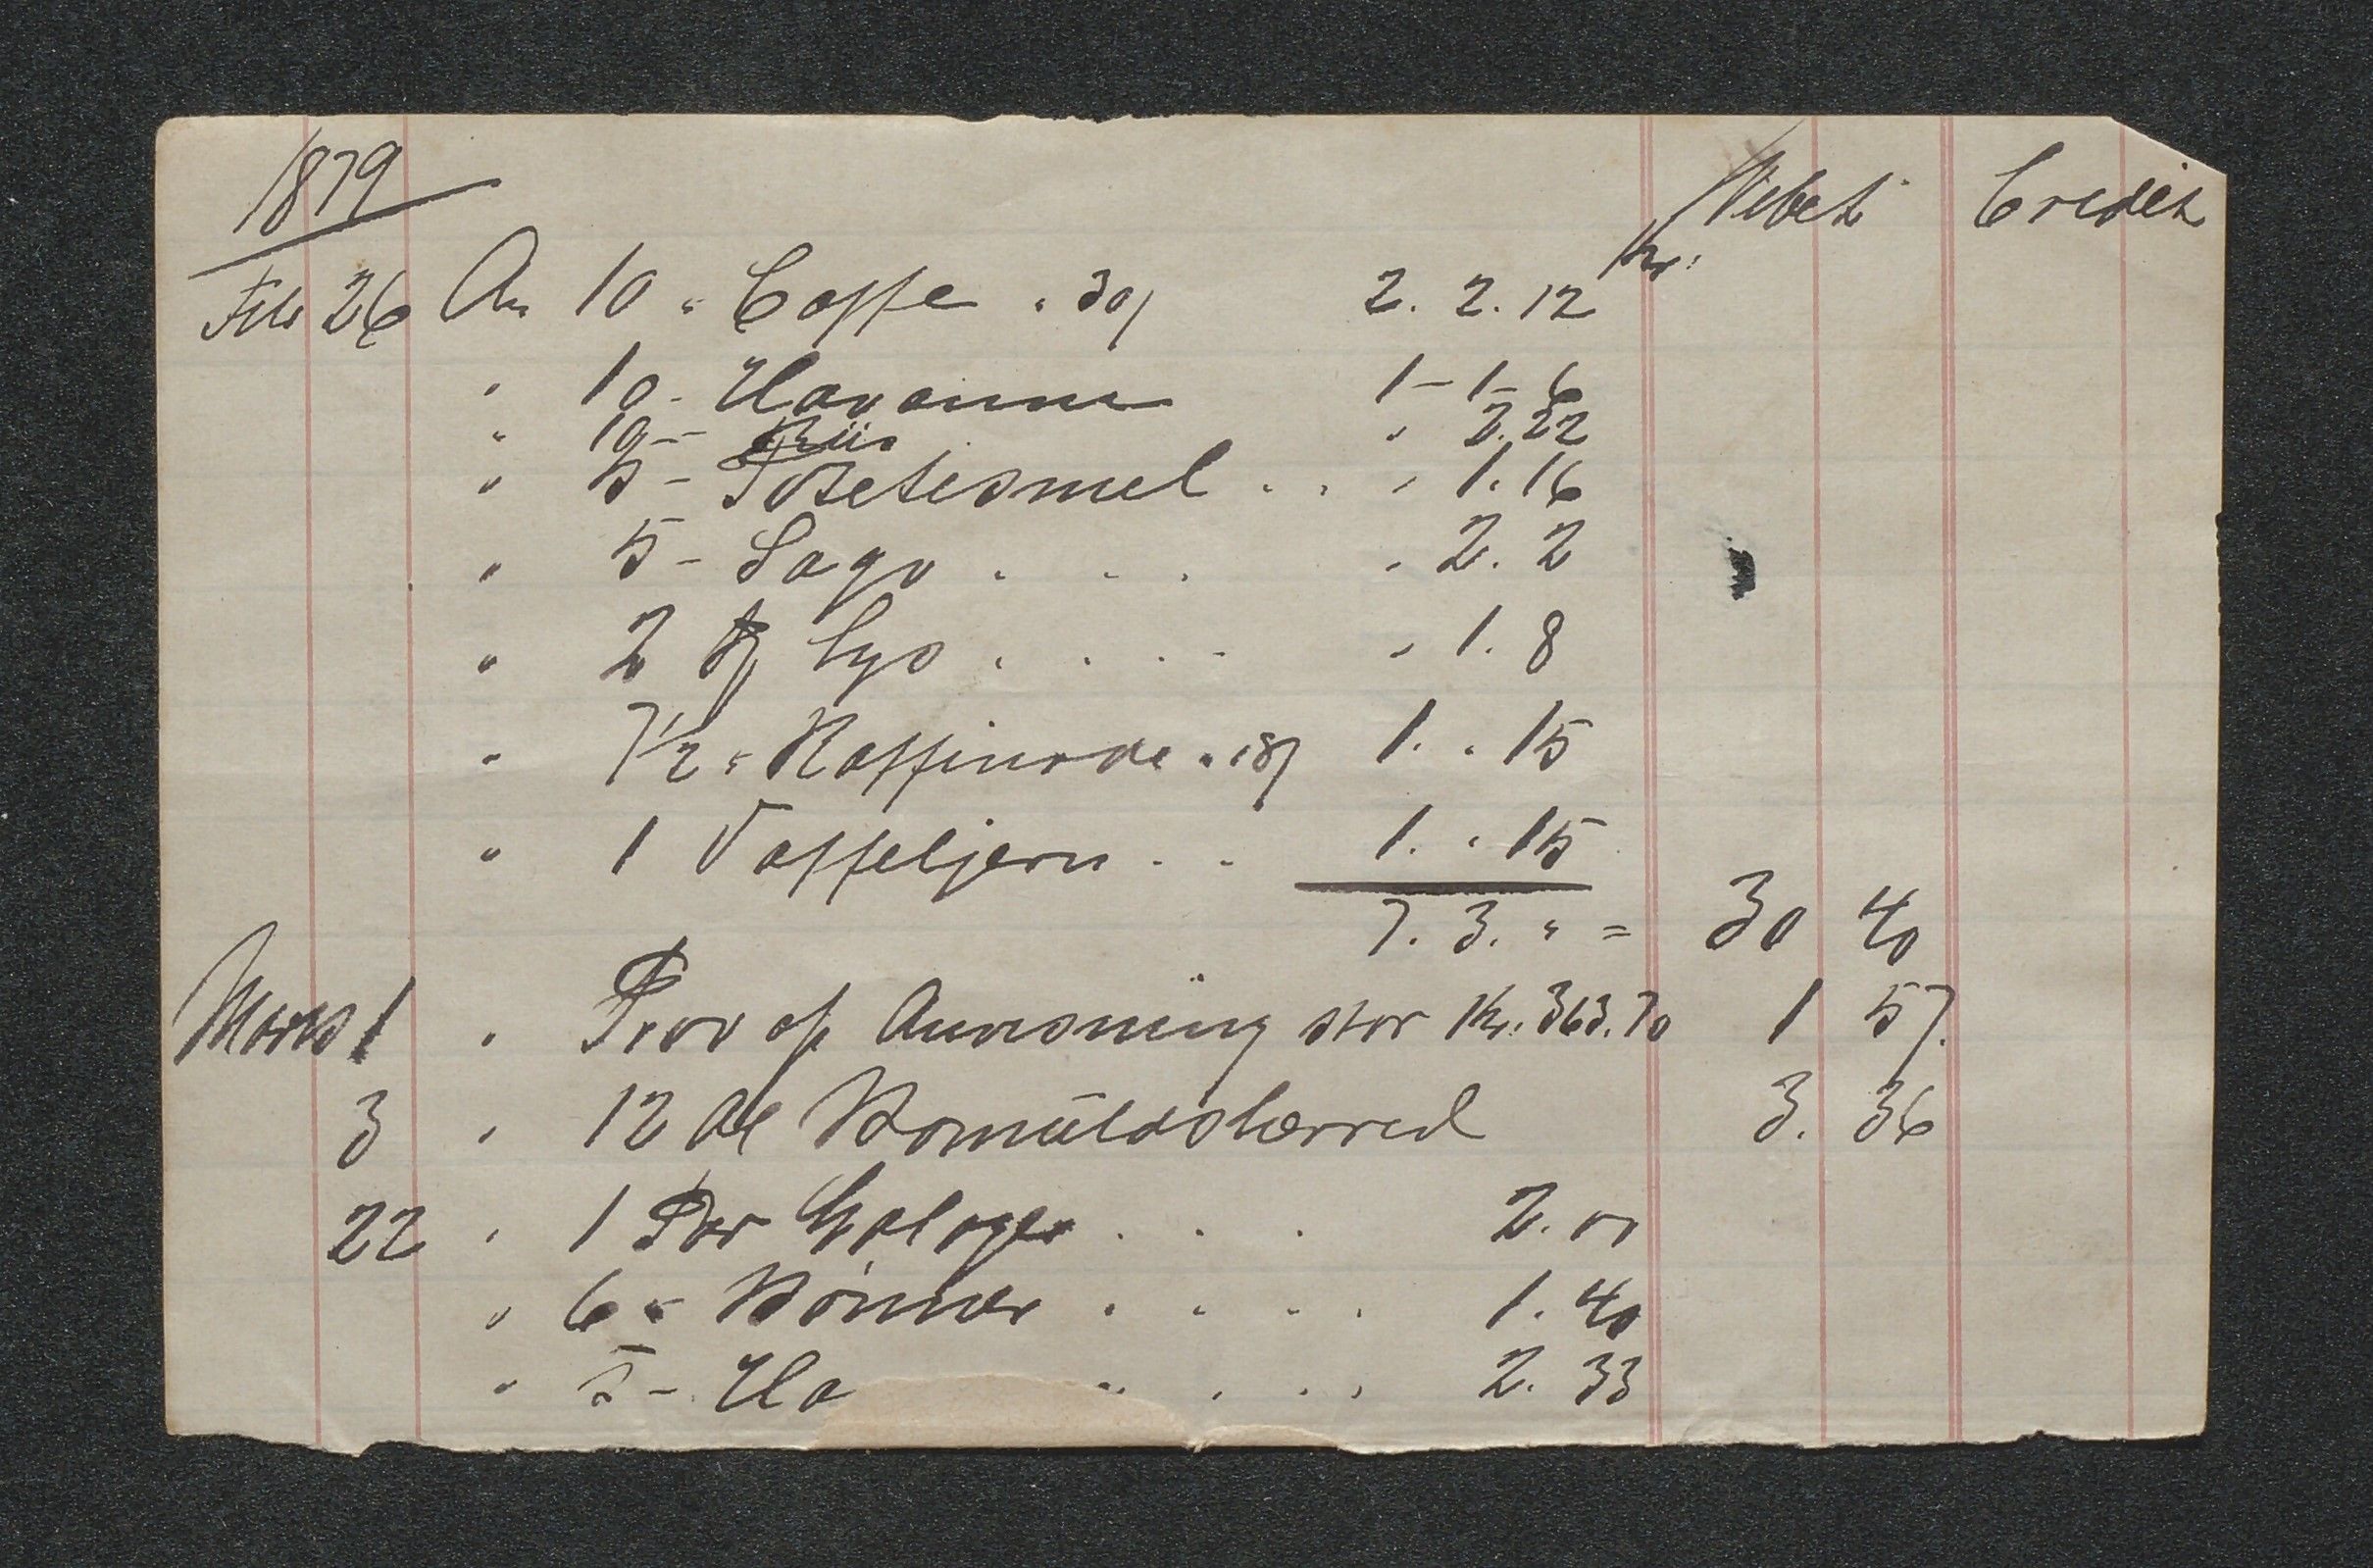 1879
Debet Credit
Kr:
Feb 26 An 10 " Caffe " 30 2. 2. 12
" 10 - Havanna 1 - 1 - 6
" 10 - Riis " 2. 22
" 5 - Potetesmel . . " 1. 16
" 5 - Sago . . . " 2. 2
" 2 Lys . . . . " 1. 8
" 7 1/2 " Raffinade " 18 1. " 15
" 1 Vaffeljern . . 1. " 15
7. 3. " = 30 40
Marts 1 " Prov af Anvisning stor Kr. 363.70 1 57.
3 " 12 Al Bomuldslærred 3. 36
22 " 1 Par Galoger . . . 2. 00
" 6 " Bønner . . . . 1. 40
" 5 - Ha . . . . 2. 33